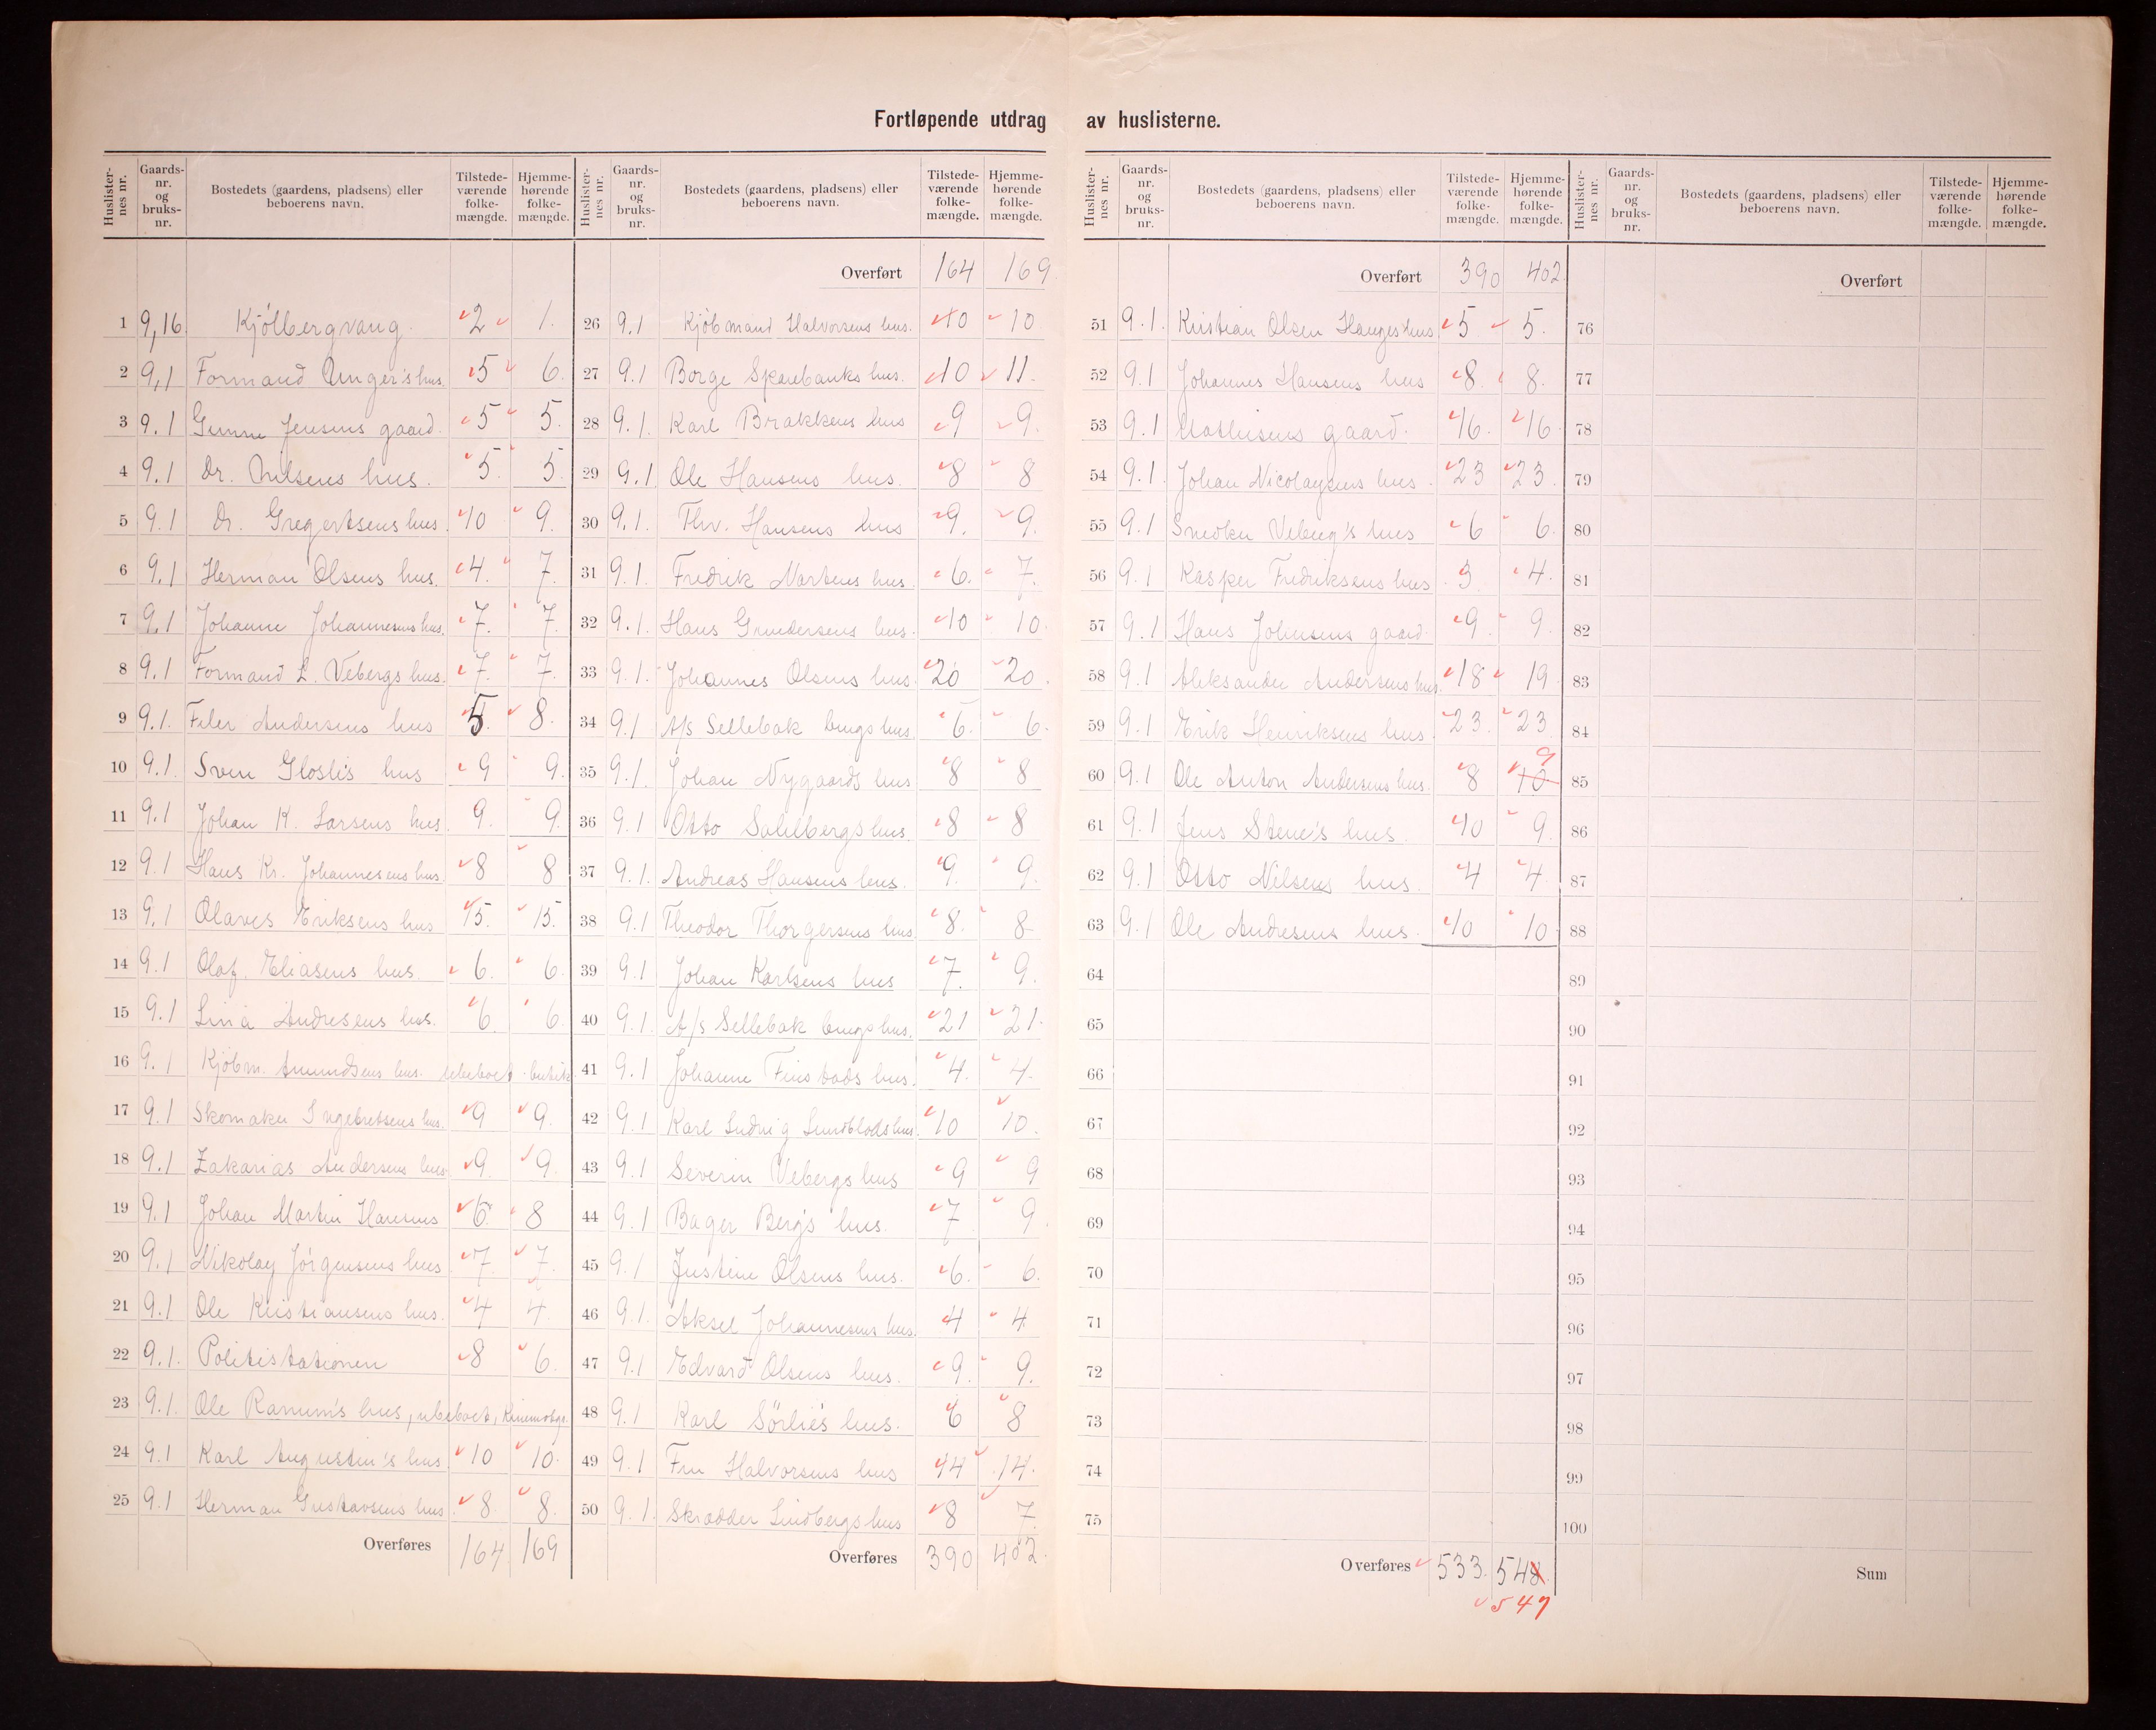 Fortløpende utdrag av huslisterne.
Huslisternes nr. Gaardsnr. og bruksnr. Bostedets (gaardens, pladsens) eller beboerens navn. Tilstedeværende folkemængde. Hjemmehørende folkemængde.
1 9,16 Kjölbergvang. 2 1.
2 9,1 Formand Unger's hus. 5 6.
3 9.1 Jensens gaard. 5 5.
4 9.1 Dr. Nilsens hus. 5 5.
5 9.1 Dr. Gregertsens hus. 10 9.
6 9.1 Herman Olsens hus. 4. 7.
7 9.1 Johanne Johannesens hus. 7. 7.
8 9.1 Formand L. Vebergs hus. 7. 7.
9 9.1. Andersens hus 5. 8.
10 9.1. Sven Gloslis hus 9 9.
11 9.1 Johan K. Larsens hus. 9. 9.
12 9.1 Hans Kr. Johannesens hus. 8 8
13 9.1 Olaves Eriksens hus 15. 15.
14 9.1 Olaf. Eliasens hus. 6. 6.
15 9.1 Lina Andresens hus. 6. 6.
16 9.1 Kjöbm. Amundsens hus. ubeboet. butik
17 9.1 Skomaker Ingebretsens hus. 9 9.
18 9.1 Zakarias Andersens hus 9. 9.
19 9.1 Johan Martin Hansens 6. 8
20 9.1 Nikolay Jörgensens hus 7. 7.
21 9.1 Ole Kristiansens hus. 4 4.
22 9.1. Politistationen 8 6.
23 9.1. Ole Ranum's hus, ubeboet, Kinematogr.
24 9.1 Karl Augustin's hus 10 10.
25 9.1 Herman Gustavsens hus. 8. 8.
Overføres 164 169
Huslisternes nr. Gaardsnr. og bruksnr. Bostedets (gaardens, pladsens) eller beboerens navn. Tilstedeværende folkemængde. Hjemmehørende folkemængde.
Overført 164 169.
26 9.1 Kjöbmand Halvorsens hus. 10 10
27 9.1 Borge Sparebanks hus. 10 11.
28 9.1. Karl Brakkens hus 9 9.
29 9.1. Ole Hansens hus. 8 8
30 9.1. Thv. Hansens hus 9. 9.
31 9.1. Fredrik Martens hus. 6. 7.
32 9.1. Hans Gundersens hus. 10 10.
33 9.1. Johannes Olsens hus. 20 20.
34 9.1 A/s Sellebak brugs hus 6. 6.
35 9.1. Johan Nygaards hus 8 8
36 9.1 Otto Sahlbergs hus. 8 8
37 9.1. Andreas Hansens hus. 9. 9.
38 9.1 Theodor Thorgersens hus 8. 8
39 9.1 Johan Karlsens hus 7. 9.
40 9.1. A/s Sellebak brugs hus. 21 21.
41 9.1 Johanne Finstads hus. 4. 4.
42 9.1 Karl Ludvig Lundblads hus. 10 10.
43 9.1 Severin Vebergs hus 9 9
44 9.1 Bager Berg's hus. 7. 9.
45 9.1 Justine Olsens hus. 6. 6.
46 9.1. Aksel Johannesens hus. 4 4
47 9.1 Edvard Olsens hus. 9. 9.
48 9.1 Karl Sörlie's hus. 6 8
49 9.1 Fru Halvorsens hus 14 14.
50 9.1. Skrædder Lindbergs hus 8 7.
Overføres 390 402.
Huslisternes nr. Gaardsnr. og bruksnr. Bostedets (gaardens, pladsens) eller beboerens navn. Tilstedeværende folkemængde. Hjemmehørende folkemængde.
Overført 390 402.
51 9.1. Kristian Olsen Hauges hus 5 5.
52 9.1 Johannes Hansens hus 8. 8.
53 9.1 Mathisens gaard. 16. 16.
54 9.1. Johan Nicolaysens hus. 23 23.
55 9.1 Snedker Veberg's hus 6 6.
56 9.1 Kasper Fredriksens hus. 3 4.
57 9.1 Hans Johnsens gaard. 9. 9.
58 9.1 Aleksander Andersens hus. 18 19
59 9.1 Erik Henriksens hus. 23. 23
60 9.1 Ole Anton Andersens hus. 8 10 9
61 9.1 Jens Stene's hus. 10 9.
62 9.1 Otto Nilsens hus. 4 4
63 9.1 Ole Andresens hus. 10 10
64
65
66
67
68
69
70
71
72
73
74
75
Overføres 533. 548.
547
Huslisternes nr. Gaardsnr. og bruksnr. Bostedets (gaardens, pladsens) eller beboerens navn. Tilstedeværende folkemængde. Hjemmehørende folkemængde.
Overført
76
77
78
79
80
81
82
83
84
85
86
87
88
89
90
91
92
93
94
95
96
97
98
99
100
Sum